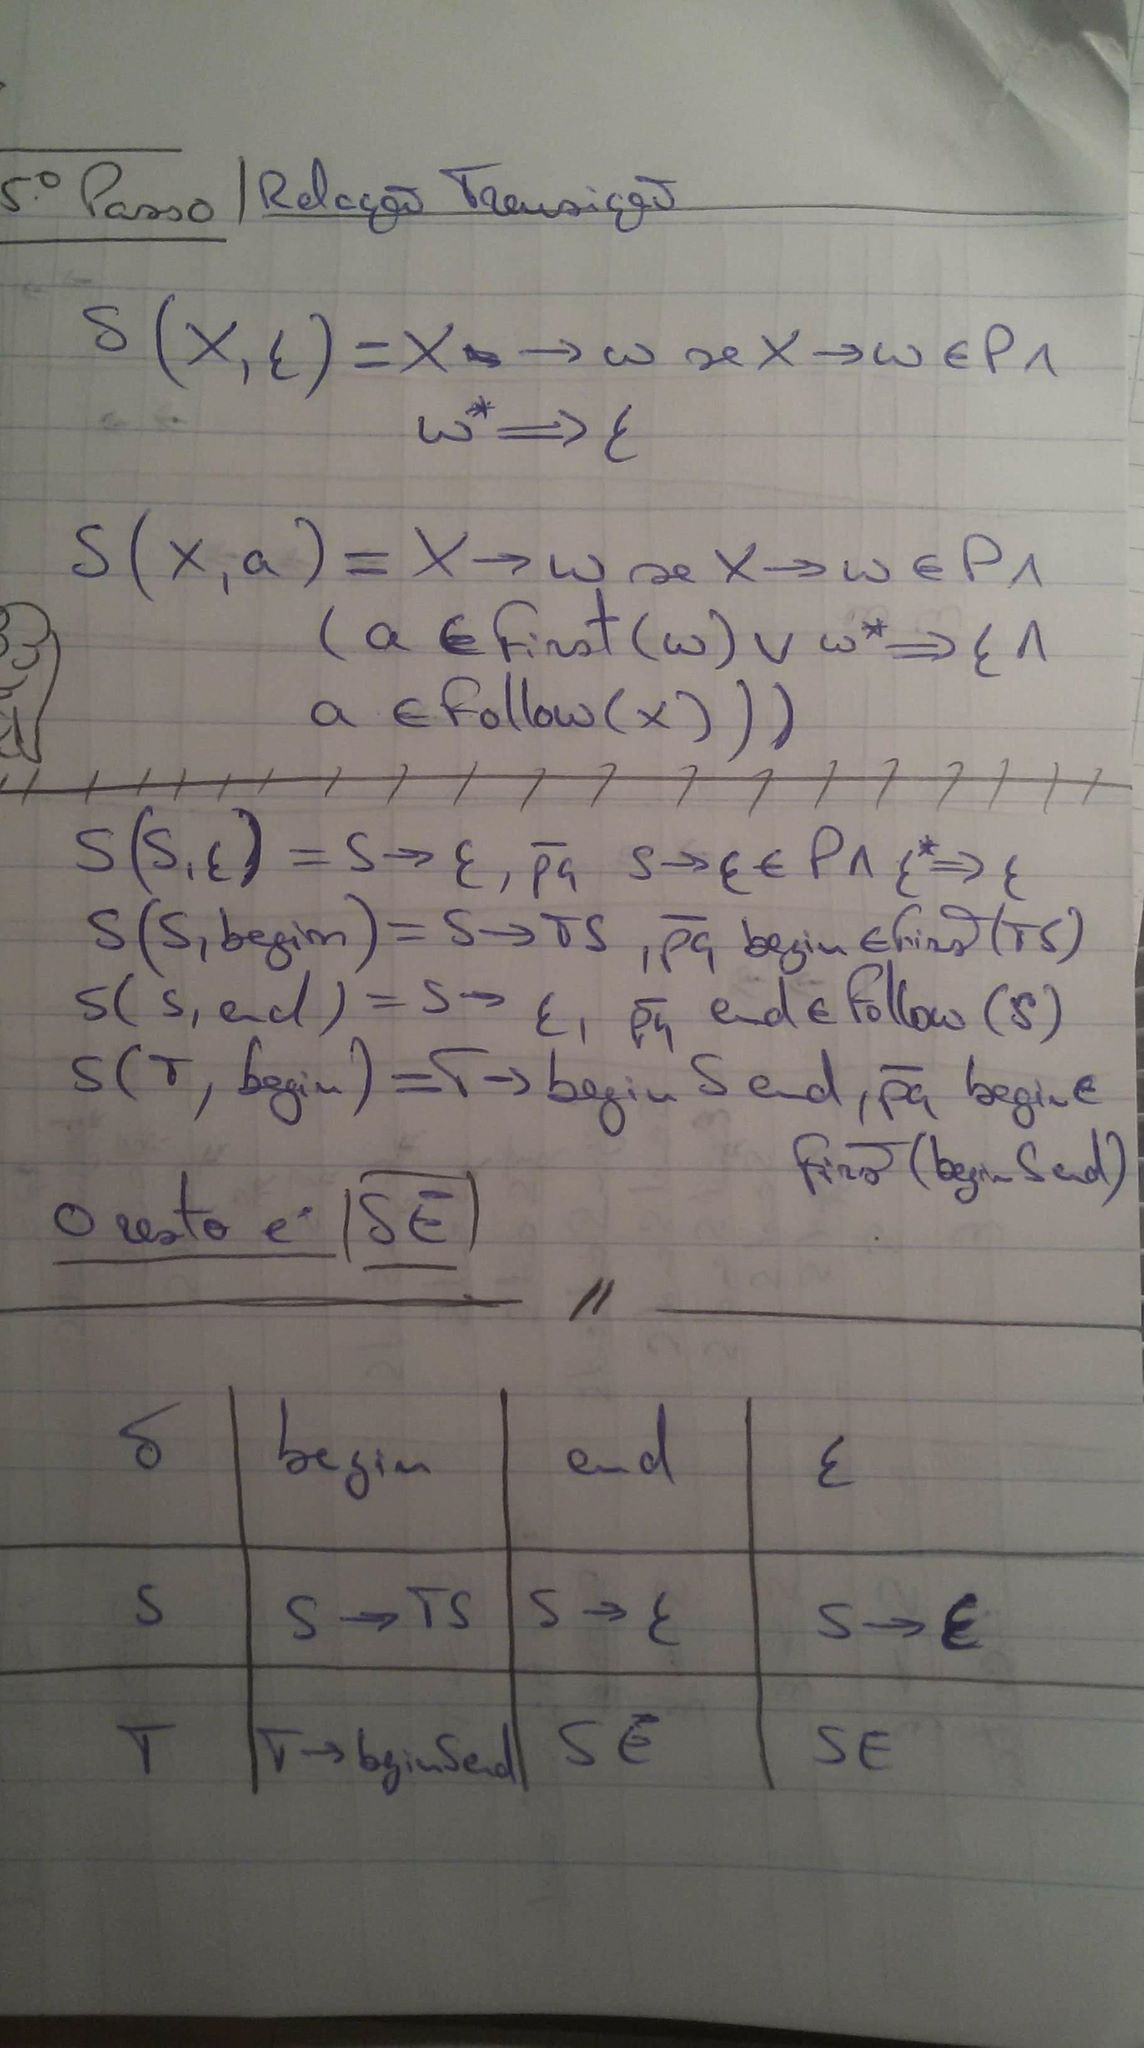 5.º Passo | Relação Transição
δ(X, ε) = X → w se X → w ∈ P ∧
w *⇒ ε
δ(X, a) = X → w se X → w ∈ P ∧
(a ∈ First(w) ∨ w *⇒ ε ∧
a ∈ Follow(X)))
δ(S, ε) = S → ε, pq S → ε ∈ P ∧ ε *⇒ ε
δ(S, begin) = S → TS, pq begin ∈ First(TS)
δ(S, end) = S → ε, pq end ∈ Follow(S)
δ(T, begin) = T → begin S end, pq begin ∈
First(begin S end)
O resto é |SE|
//
δ | begin | end | ε
S | S → TS | S → ε | S → ε
T | T → begin S end | SE | SE